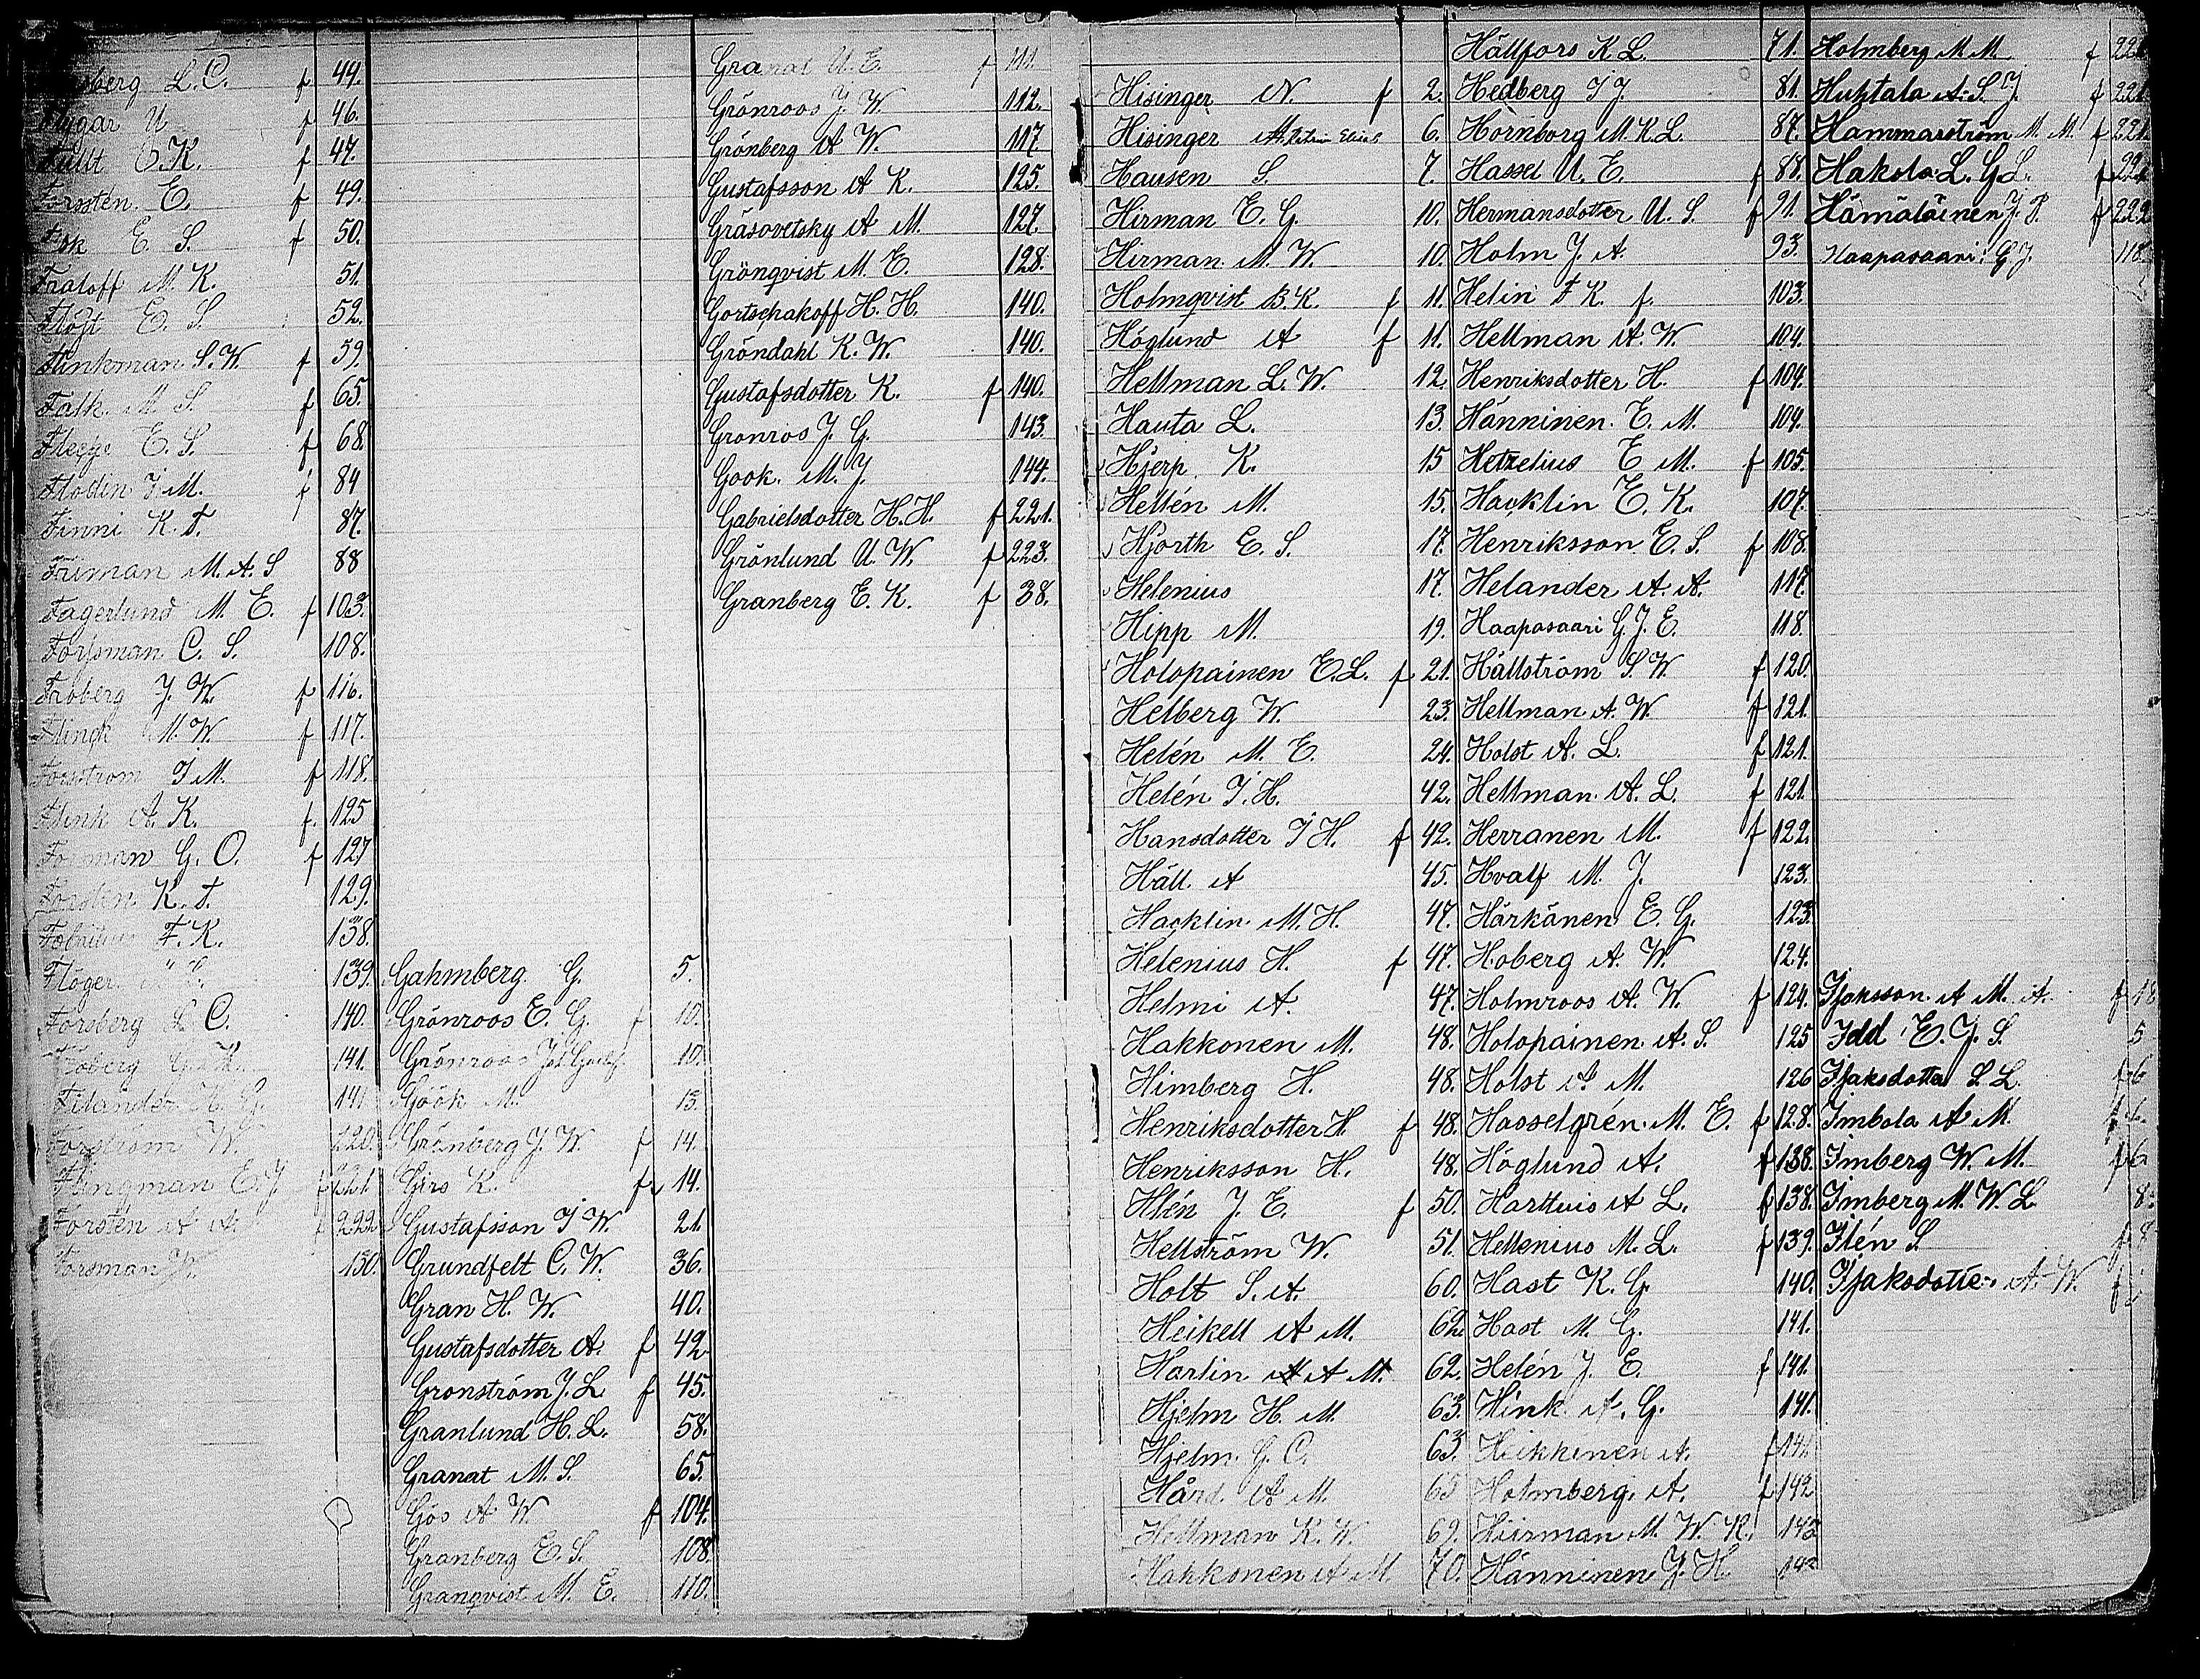 Forsberg L. C. f 44.
Flygar U f 46.
Fullt E. K. f 47.
Forsstén E. f 49.
Fisk E. S. f 50.
Fraloff M. K. 51.
Flöjt E. S. 52.
Flinkman S. W. f 59.
Falk M. S. f 65.
Flegge E. S. f 68.
Flodin J. M. f 84
Finni K. F. 87.
Friman M. A. S 88
Fagerlund M. E. f 103.
Forsman C. S. 108.
Fröberg J. W. f 116.
Flinck M. W. f 117.
Forsström J. M. f 118.
Flink A. K. f. 125
Forsman G. O. f 127
Forstén K. F. 129.
F. K. 138.
Flöger 139.
Forsberg L. C. 140.
141.
Filander K. G. 141
Forsström W. 120.
Flingman E. J. f 221.
Forstén A. A. f 222.
Forsman 130.
Gahmberg G. 5.
Grönroos E. G. f 10.
Grönroos Joh. Gustaf 10.
Göök M. 13.
Grönberg J. W. f 14.
Girs K. f 14.
Gustafsson J W. 21.
Grundfelt C. W. 36.
Gran H. W. 40.
Gustafsdotter A. f 42
Gronström J. L. f 45.
Granlund H. L. 58.
Granat M. S. 65.
Gös A W. f 104.
Granberg E. S. 108
Granqvist M. E. 110.
Granat U. E. f 111.
Grönroos J. W. 112.
Grönberg A W. 117.
Gustafsson A K. 125.
Gräsovetsky A M. 127.
Grönqvist M. E. 128.
Gortschakoff H. H. 140.
Gröndahl K. W. 140.
Gustafsdotter K. f 140.
Gronros J. G. 143.
Gook. M. J. 144.
Gabrielsdotter H. H. f 221.
Grönlund U. W. f 223.
Granberg E. K. f 38.
Hisinger N. f 2.
Hisinger M. Katrin Elisab 6.
Hausen S. 7.
Hirman E. G. 10.
Hirman. M. W. 10.
Holmqvist B. K. f 11.
Höglund A f 11.
Hellman L. W. 12.
Hauta L. 13.
Hjerp K. 15
Hellén M. 15.
Hjorth E. S. 17.
Helenius 17.
Hipp M. 19.
Holopainen E. L. f 21.
Helberg W. 23.
Helén M. E. 24.
Helén J. H. 42.
Hansdotter J H. f 42.
Häll A 45.
Hacklin M. H. 47.
Helenius H. f 47.
Helmi A. 47.
Hakkonen M. 48.
Himberg H. 48.
Henriksdotter H f 48.
Henriksson H. 48.
Hlén J. E. f 50.
Hellström W. 51.
Holt S. A. 60.
Heikell A M. 62.
Harlin A A M. 62.
Hjelm H. M. 63.
Hjelm G. C. 63.
Hård A M. 65
Hellman K. W. 69.
Hakkonen A M. 70.
Hällfors K L. 71.
Hedberg J J. 81.
Hörnborg M. K. L. 87.
Hassel U. E. f 88.
Hermansdotter U. S. f 91.
Holm J. A. 93.
Helin F K. f. 103.
Hellman A. W. 104.
Henriksdotter H. f 104.
Hänninen. E. M. 104.
Hetzelius E M. f 105.
Hacklin E. K. 107.
Henriksson E. S. f 108.
Helander A. A. 117.
Haapasaari G. J. E. 118.
Hällström S. W. f 120.
Hellman A. W. f 121.
Holst A. L. f 121.
Hellman. A. L. f 121.
Herranen M. f 122.
Hvalf M. J. 123.
Härkänen E. G. 123.
Hoberg A. W. 124.
Holmroos A. W. f 124.
Holopainen. A. S. 125
Holst A M. 126
Hasselgrén. M. E. f 128.
Höglund A. f 138.
Harttuis A L. f 138.
Hellenius M. L. f 139.
Hast K. G. 140.
Hast M. G. 141.
Helén J. E. f 141.
Hink A. G. 141.
Heikkinen A. f 141
Holmberg. A. f 142
Hiirman M. W. K. 142
Hänninen J. K. 142
Holmberg M. M. f
Huhtala A. S. J. f 221.
Hammarström M M. f 221.
Hakola L. G. L. f
Hämäläinen J. P. f 222
Haapasaari G J. 118.
Isaksson A M. A. f 18
Idd E. J. S. 5
Isaksdotter S. L. f 6
Imbola A M. f 6.
Imberg W. M. f 6
Imberg M. W. L. 8.
Ilén S. f 8
Isaksdotter A. W. f